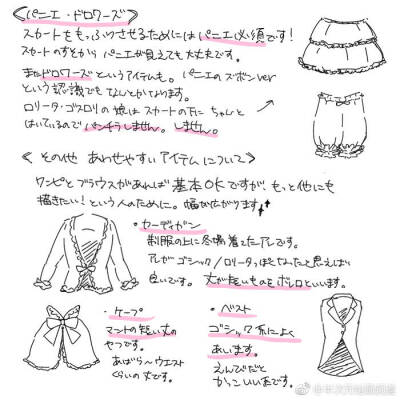 《パニエ・ドロワーズ》
スカートをもっふりさせるためにはパニエ必須です!
スカートのすそからパニエが見えても大丈夫です。
またドロワーズというアイテムも。パニエのズボンver
という認識でもなんとかなります。
ロリータ・ゴスロリの娘はスカートの下にちゃんと
はいているのでパンチラしません。しません。
《その他 あわせやすいアイテムについて》
ワンピとブラウスがあれば基本OKですが、もっと他にも
描きたい!という人のために。幅が広がります
・カーディガン
制服の上に冬場着てたアレです。
アレがゴシック/ロリータっぽくなったと思えば
良いです。丈が短いものをボレロといいます。
・ケープ
マントの短い丈の
やつです。
あばら〜ウエスト
くらいの丈です。
・ベスト
ゴシック系によく
あいます。
えんびだと
かっこいいあです。